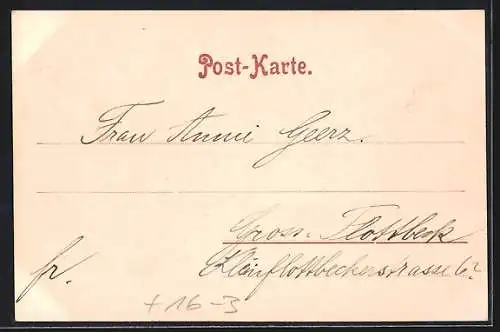 Post-Karte.
Frau Anni Geerz.
Gross-Flottbeck
Kleinflottbeckerstrasse 62
fr.
+16-3